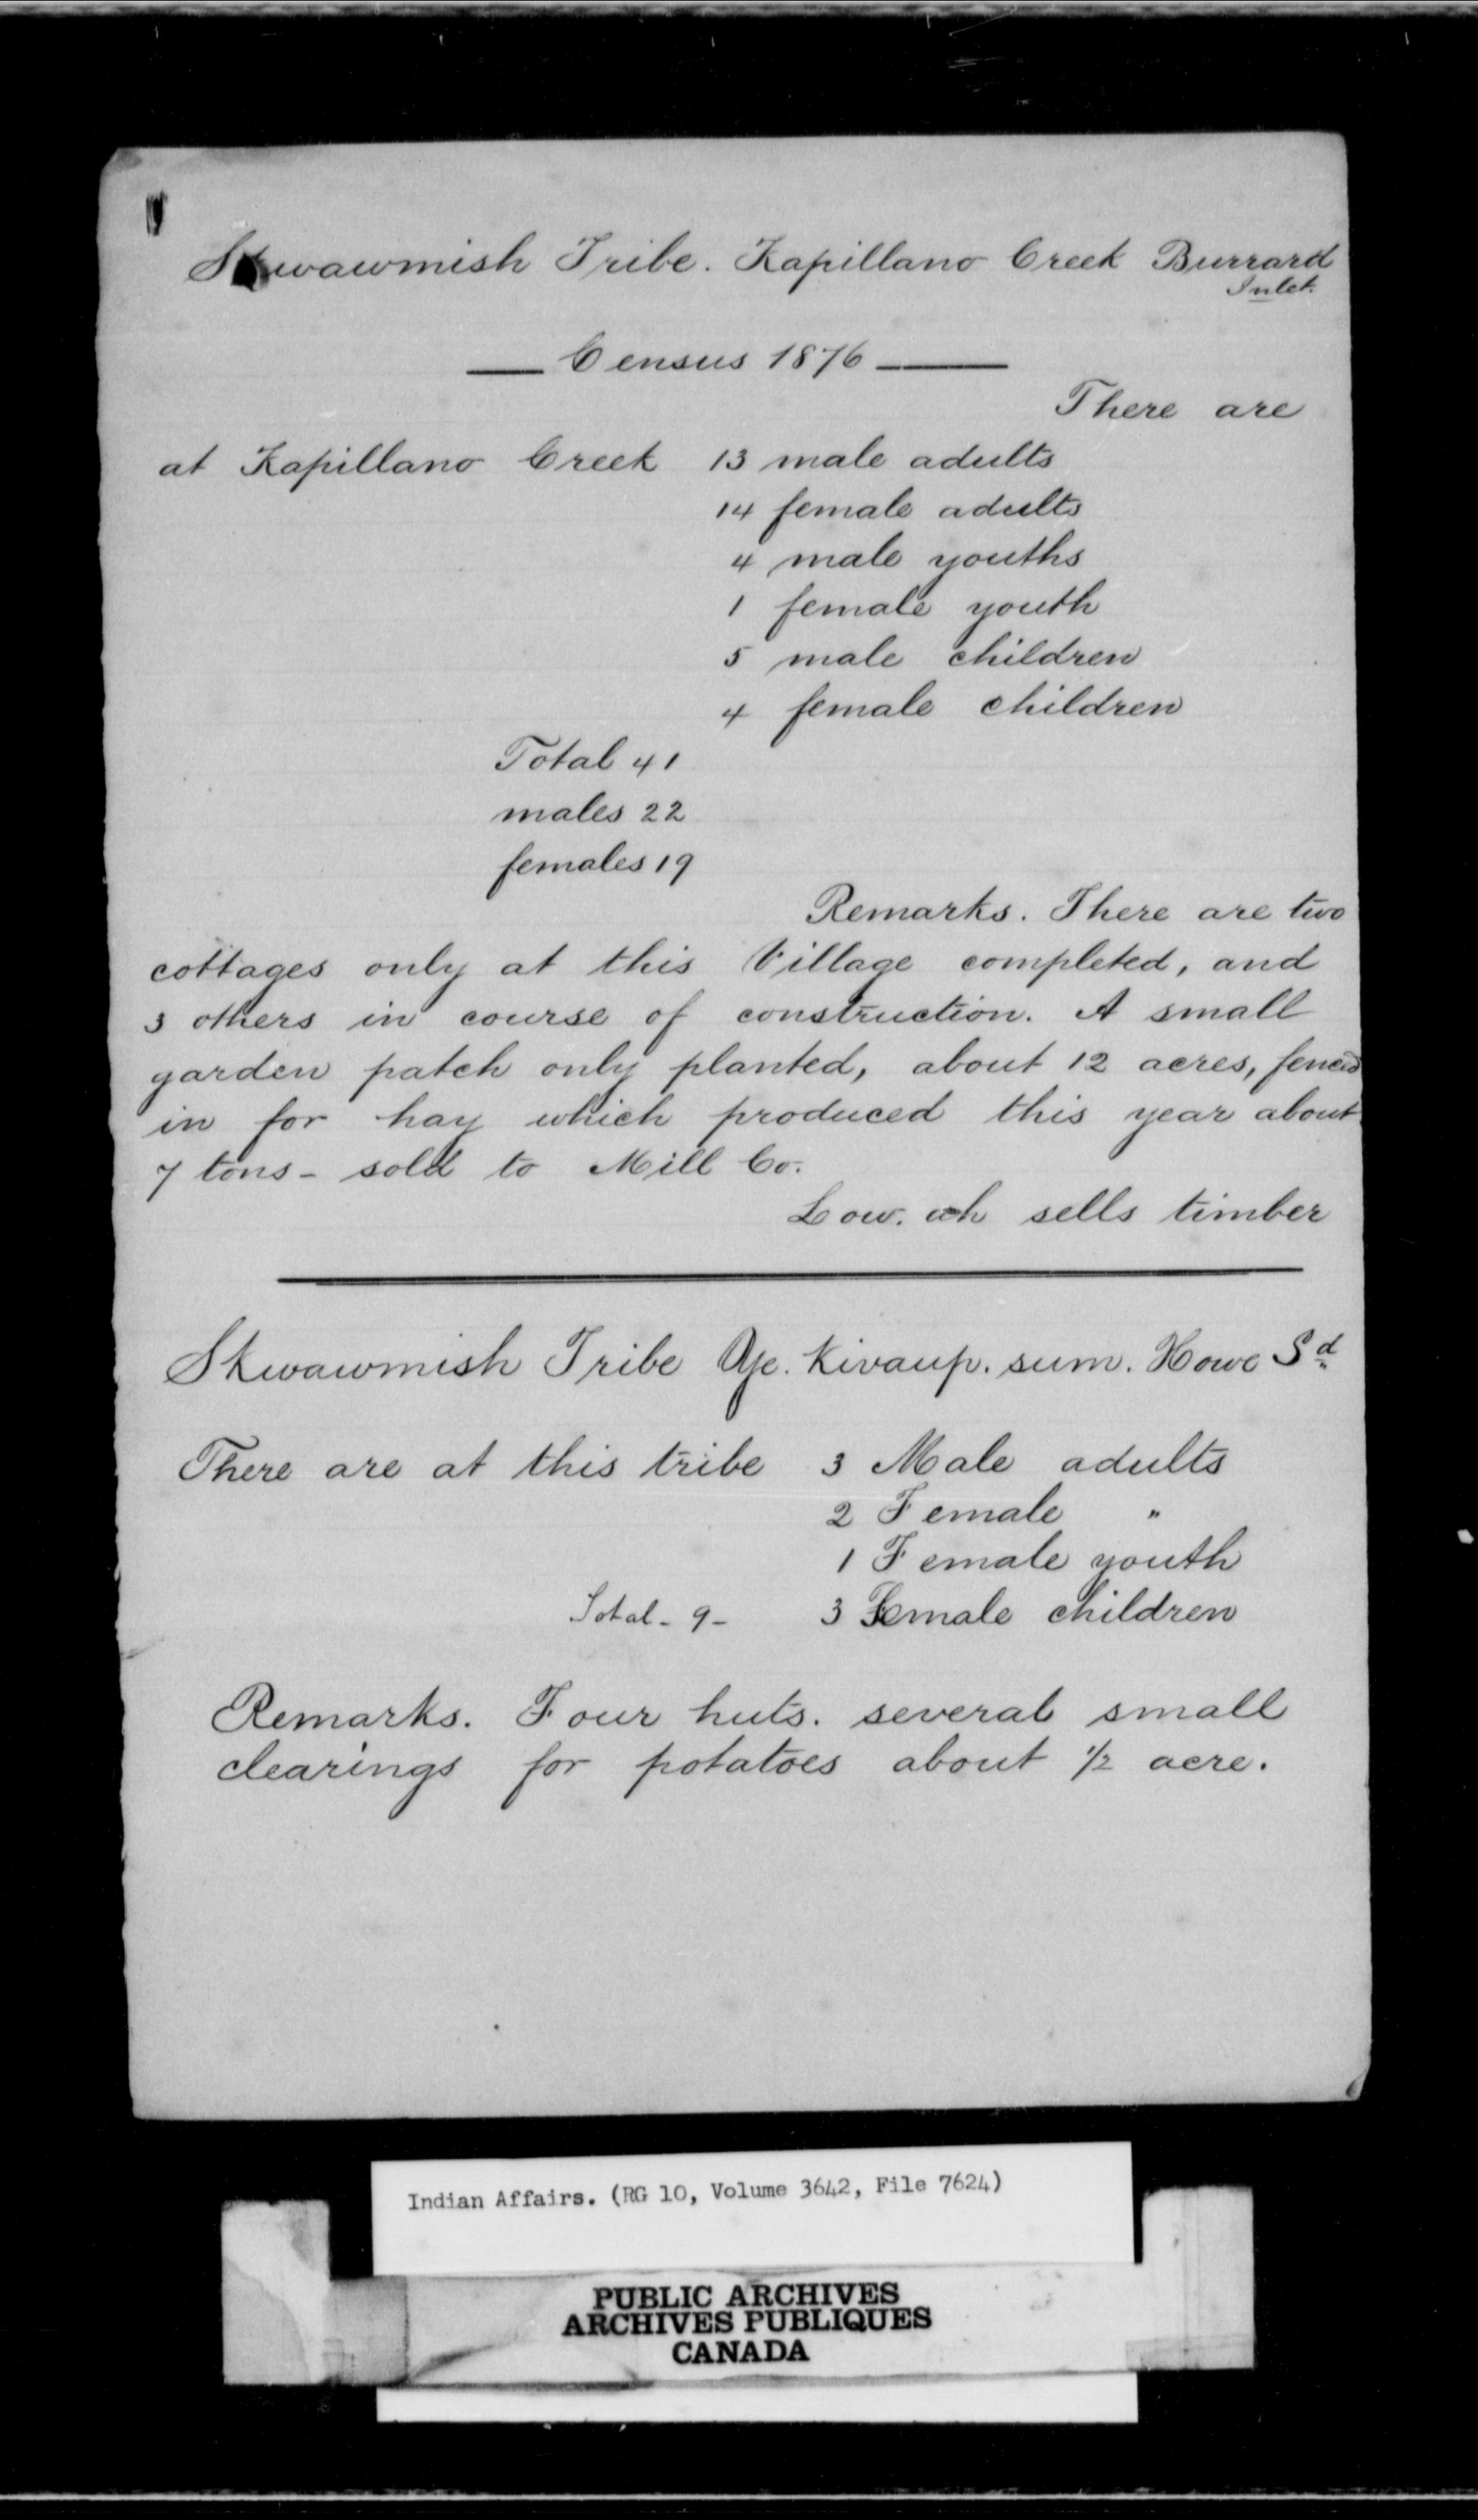 Skwawmish Tribe. Kapillano Creek Burrard
Inlet.
Census 1876
There are
at Kapillano Creek 13 male adults
14 female adults
4 male youths
1 female youth
5 male children
4 female children
Total 41
males 22
females 19
Remarks. There are two
cottages only at this Village completed, and
3 others in course of construction. A small
garden patch only planted, about 12 acres, fenced
in for hay which produced this year about
7 tons - sold to Mill Co.
Low. uh sells timber
Skwawmish Tribe Kivaup. sum. Howe Sd
There are at this tribe 3 Male adults
2 Female "
1 Female youth
Total - 9 - 3 Female children
Remarks. Four huts. several small
clearings for potatoes about 1/2 acre.
Indian Affairs. (RG 10, Volume 3642, File 7624)
PUBLIC ARCHIVES
ARCHIVES PUBLIQUES
CANADA